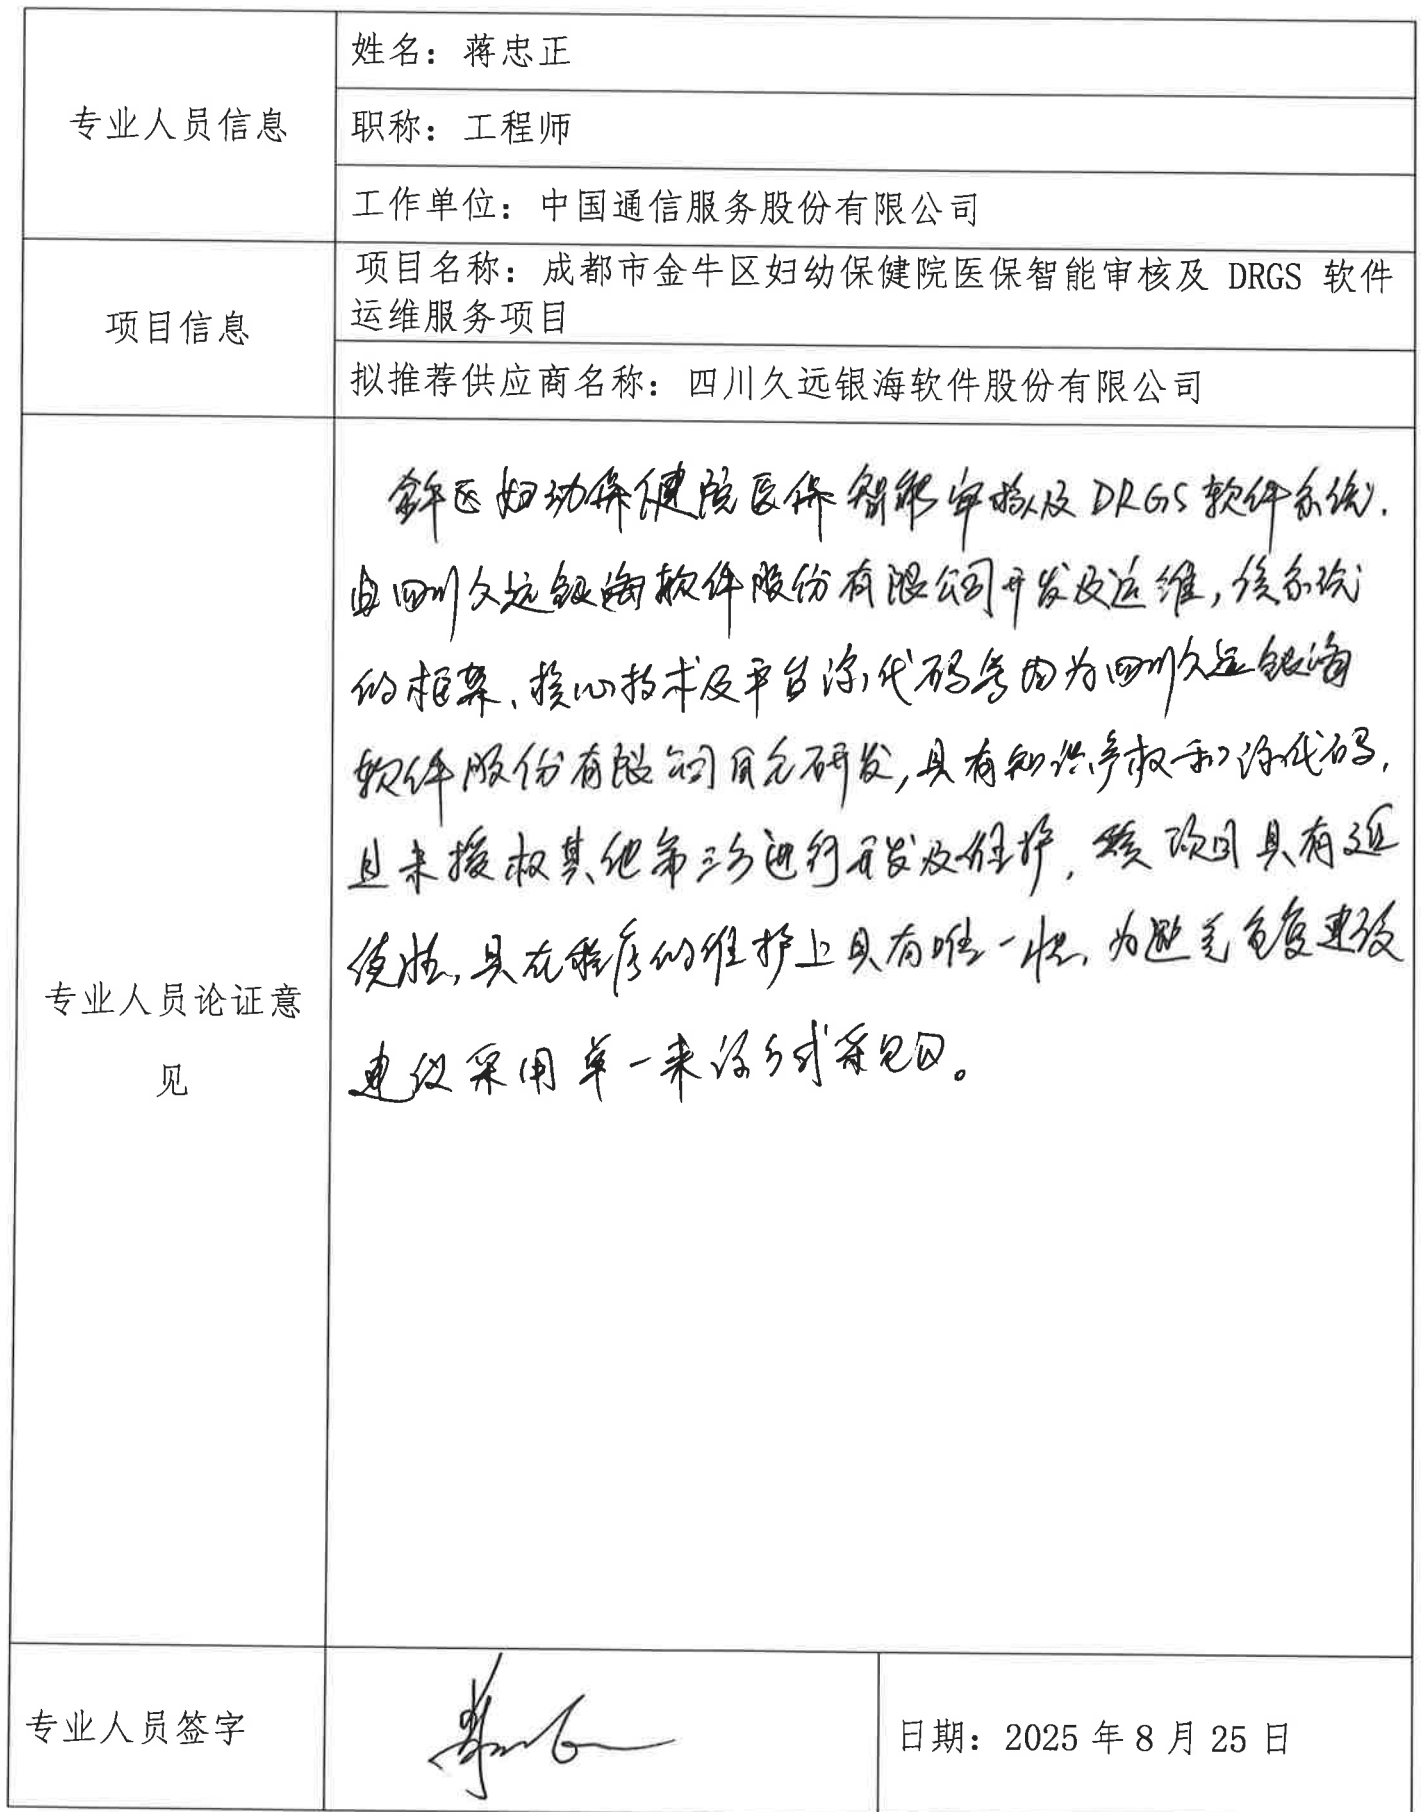 专业人员信息
姓名：蒋忠正
职称：工程师
工作单位：中国通信服务股份有限公司
项目信息
项目名称：成都市金牛区妇幼保健院医保智能审核及 DRGS 软件
运维服务项目
拟推荐供应商名称：四川久远银海软件股份有限公司
专业人员论证意
见
金牛区妇幼保健院医保智能审核及DRGS软件系统，
由四川久远银海软件股份有限公司开发及运维，该系统
的框架、核心技术及平台源代码等均为四川久远银海
软件股份有限公司自主研发，具有知识产权和源代码，
且未授权其他第三方进行开发及维护，该项目具有延
续性，且在程序的维护上具有唯一性，为避免重复建设
建议采用单一来源方式采购。
专业人员签字
日期：2025 年 8 月 25 日